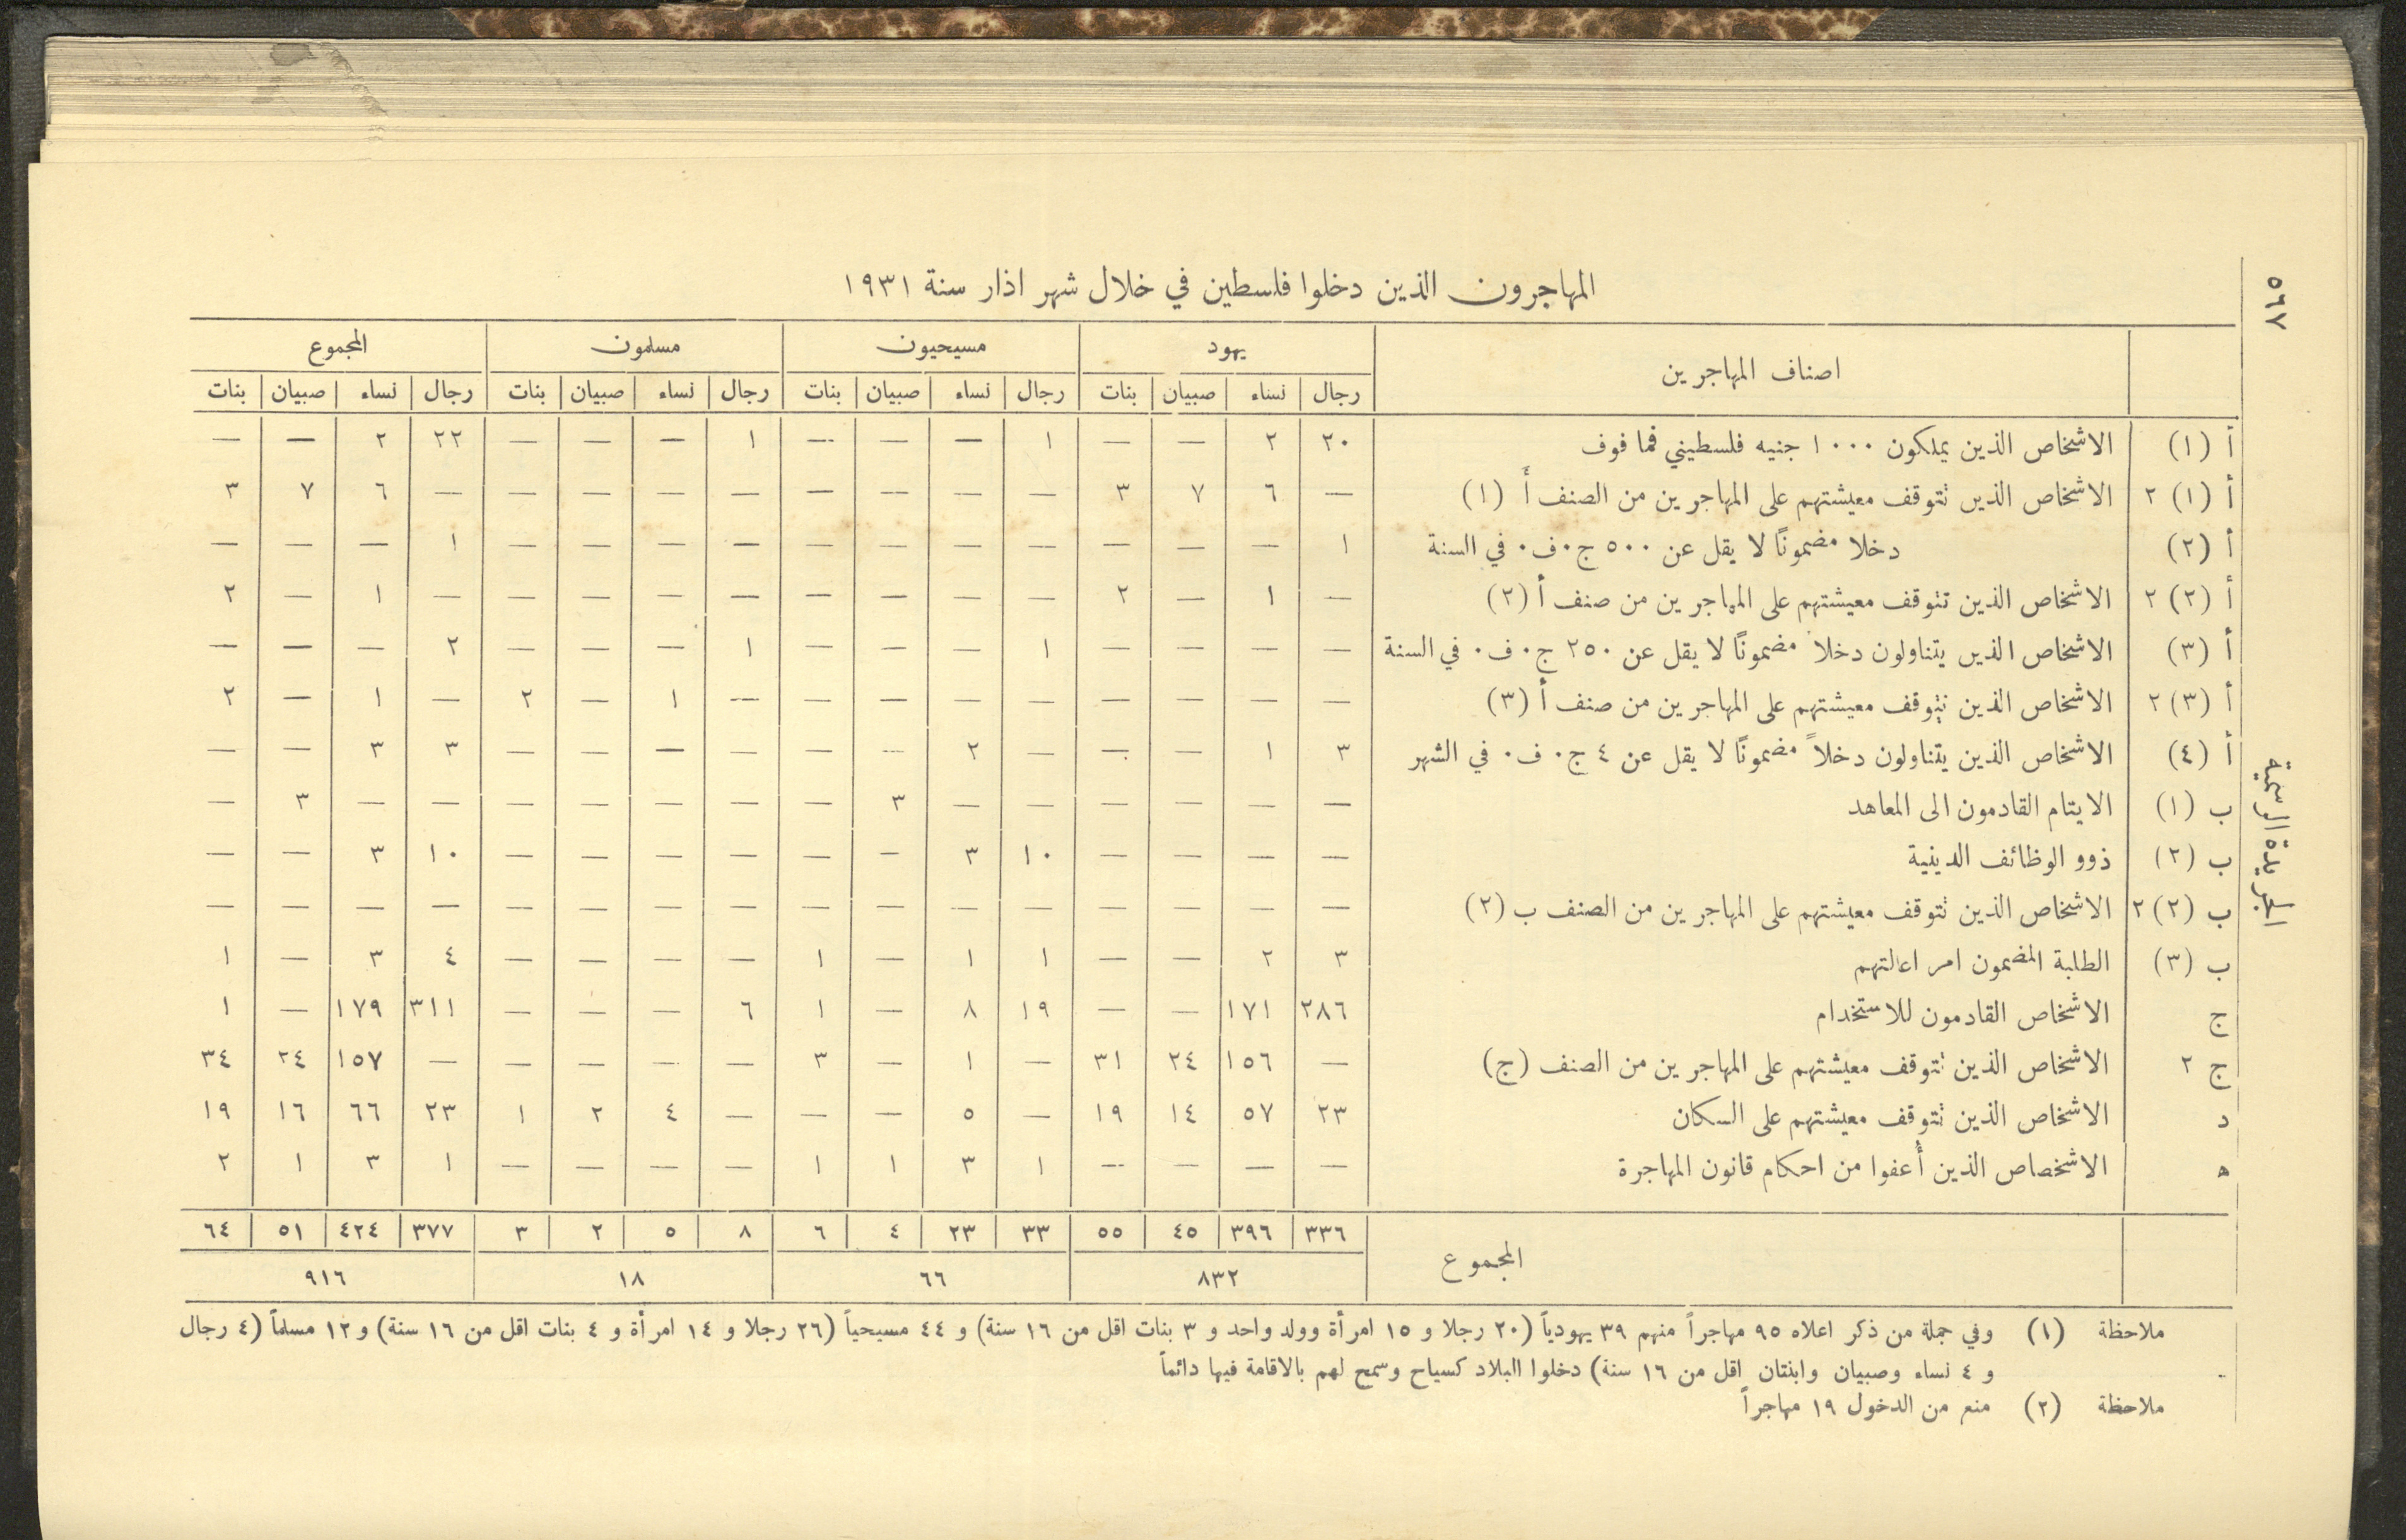 ٥٦٧
الجريدة الرسمية
المهاجرون الذين دخلوا فلسطين في خلال شهر اذار سنة ١٩٣١
اصناف المهاجرين | يهود | مسيحيون | مسلمون | المجموع
رجال | نساء | صبيان | بنات | رجال | نساء | صبيان | بنات | رجال | نساء | صبيان | بنات | رجال | نساء | صبيان | بنات
أ (١) | الاشخاص الذين يملكون ١٠٠٠ جنيه فلسطيني فما فوف | ٢٠ | ٢ | — | — | ١ | — | — | — | ١ | — | — | — | ٢٢ | ٢ | — | —
أ (١) ٢ | الاشخاص الذين تتوقف معيشتهم على المهاجرين من الصنف أ (١) | — | ٦ | ٧ | ٣ | — | — | — | — | — | — | — | — | — | ٦ | ٧ | ٣
أ (٢) | دخلا مضمونًا لا يقل عن ٥٠٠ ج٠ف٠ في السنة | ١ | — | — | — | — | — | — | — | — | — | — | — | ١ | — | — | —
أ (٢) ٢ | الاشخاص الذين تتوقف معيشتهم على المهاجرين من صنف أ (٢) | — | ١ | — | ٢ | — | — | — | — | — | — | — | — | — | ١ | — | ٢
أ (٣) | الاشخاص الذين يتناولون دخلاً مضمونًا لا يقل عن ٢٥٠ ج٠ ف٠ في السنة | — | — | — | — | ١ | — | — | — | ١ | — | — | — | ٢ | — | — | —
أ (٣) ٢ | الاشخاص الذين تتوقف معيشتهم على المهاجرين من صنف أ (٣) | — | — | — | — | — | — | — | — | — | ١ | — | ٢ | — | ١ | — | ٢
أ (٤) | الاشخاص الذين يتناولون دخلاً مضمونًا لا يقل عن ٤ ج٠ ف٠ في الشهر | ٣ | ١ | — | — | — | ٢ | — | — | — | — | — | — | ٣ | ٣ | — | —
ب (١) | الايتام القادمون الى المعاهد | — | — | — | — | — | — | ٣ | — | — | — | — | — | — | — | ٣ | —
ب (٢) | ذوو الوظائف الدينية | — | — | — | — | ١٠ | ٣ | — | — | — | — | — | — | ١٠ | ٣ | — | —
ب (٢) ٢ | الاشخاص الذين تتوقف معيشتهم على المهاجرين من الصنف ب (٢) | — | — | — | — | — | — | — | — | — | — | — | — | — | — | — | —
ب (٣) | الطلبة المضمون امر اعالتهم | ٣ | ٢ | — | — | ١ | ١ | — | ١ | — | — | — | — | ٤ | ٣ | — | ١
ج | الاشخاص القادمون للاستخدام | ٢٨٦ | ١٧١ | — | — | ١٩ | ٨ | — | ١ | ٦ | — | — | — | ٣١١ | ١٧٩ | — | ١
ج ٢ | الاشخاص الذين تتوقف معيشتهم على المهاجرين من الصنف (ج) | — | ١٥٦ | ٢٤ | ٣١ | — | ١ | — | ٣ | — | — | — | — | — | ١٥٧ | ٢٤ | ٣٤
د | الاشخاص الذين تتوقف معيشتهم على السكان | ٢٣ | ٥٧ | ١٤ | ١٩ | — | ٥ | — | — | — | ٤ | ٢ | ١ | ٢٣ | ٦٦ | ١٦ | ١٩
ه | الاشخصاص الذين أُعفوا من احكام قانون المهاجرة | — | — | — | — | ١ | ٣ | ١ | ١ | — | — | — | — | ١ | ٣ | ١ | ٢
المجموع | ٣٣٦ | ٣٩٦ | ٤٥ | ٥٥ | ٣٣ | ٢٣ | ٤ | ٦ | ٨ | ٥ | ٢ | ٣ | ٣٧٧ | ٤٢٤ | ٥١ | ٦٤
٨٣٢ | ٦٦ | ١٨ | ٩١٦
ملاحظة (١) وفي جملة من ذكر اعلاه ٩٥ مهاجراً منهم ٣٩ يهودياً (٢٠ رجلا و ١٥ امرأة وولد واحد و ٣ بنات اقل من ١٦ سنة) و ٤٤ مسيحياً (٢٦ رجلا و ١٤ امرأة و ٤ بنات اقل من ١٦ سنة) و ١٢ مسلماً (٤ رجال
و ٤ نساء وصبيان وابنتان اقل من ١٦ سنة) دخلوا البلاد كسياح وسمح لهم بالاقامة فيها دائماً
ملاحظة (٢) منع من الدخول ١٩ مهاجراً